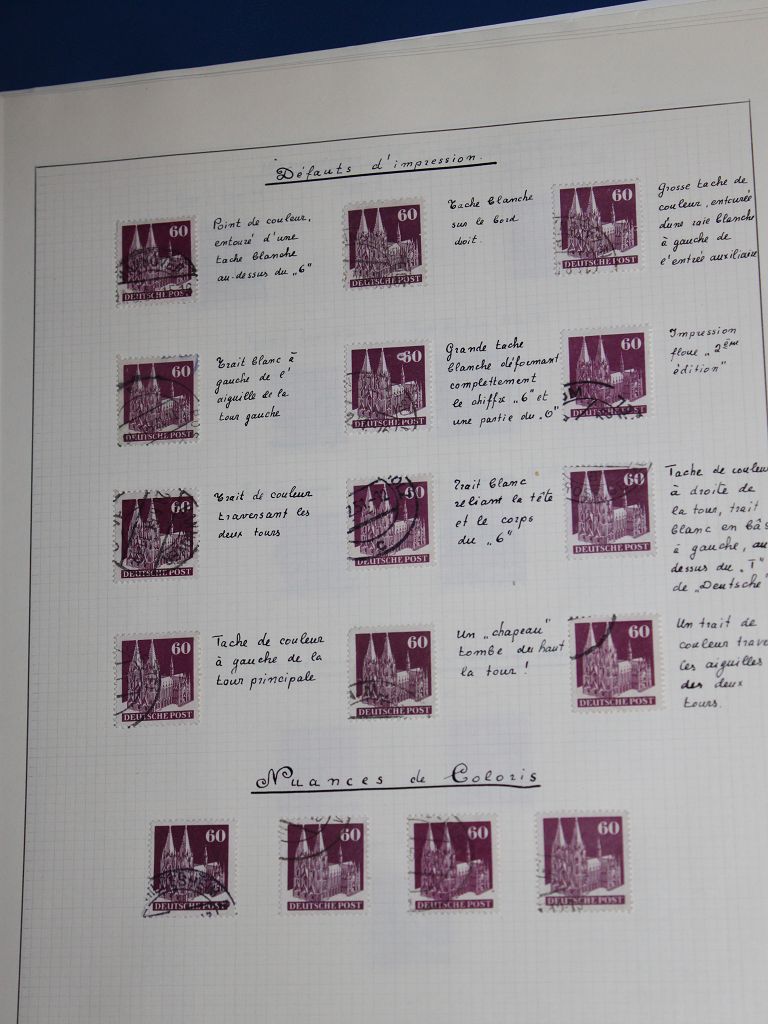 Défauts d'impression.
60
DEUTSCHE POST
Point de couleur,
entouré d'une
tache blanche
au-dessus du "6"
60
DEUTSCHE POST
Tache blanche
sur le bord
doit.
60
DEUTSCHE POST
Grosse tache de
couleur, entourée
d'une raie blanche
à gauche de
l'entrée auxiliaire
60
DEUTSCHE POST
Trait blanc à
gauche de l'
aiguille de la
tour gauche
60
DEUTSCHE POST
Grande tache
blanche déformant
complettement
le chiffre "6" et
une partie du "0"
60
DEUTSCHE POST
Impression
floue "2ème
édition"
60
DEUTSCHE POST
Trait de couleur
traversant les
deux tours
60
DEUTSCHE POST
Trait blanc
reliant la tête
et le corps
du "6"
60
DEUTSCHE POST
Tache de couleu
à droite de
la tour, trait
blanc en bâs
à gauche, au
dessus du "T"
de "Deutsche"
60
DEUTSCHE POST
Tache de couleur
à gauche de la
tour principale
60
DEUTSCHE POST
Un "chapeau"
tombe du haut
la tour !
60
DEUTSCHE POST
Un trait de
couleur trave
les aiguilles
des deux
tours.
Nuances de Coloris
60
DEUTSCHE POST
60
DEUTSCHE POST
60
DEUTSCHE POST
60
DEUTSCHE POST